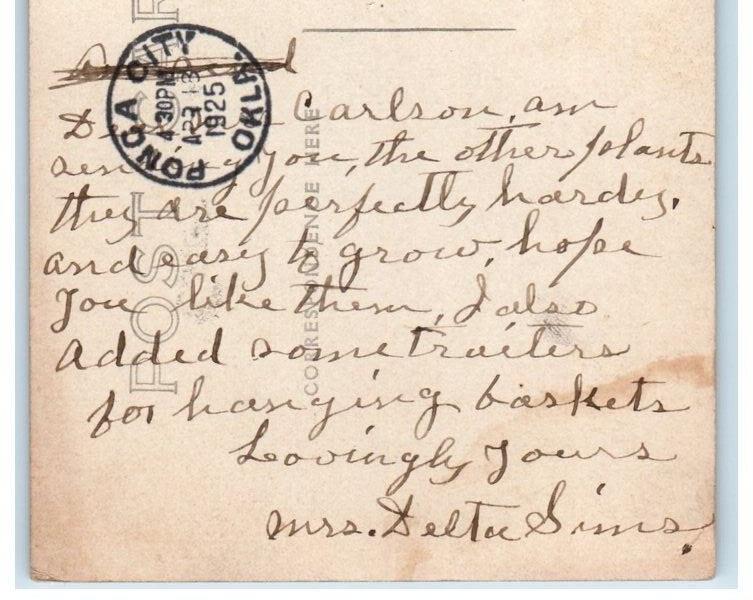 PONCA CITY OKLA.
4 30PM
1925
POST
CORRESPONDENCE HERE
Carlson, am
sending you, the other plants
they are perfectly hardy.
and easy to grow, hope
you like them, I also
added some trailers
for hanging baskets
Lovingly yours
Mrs. Delta Sims.